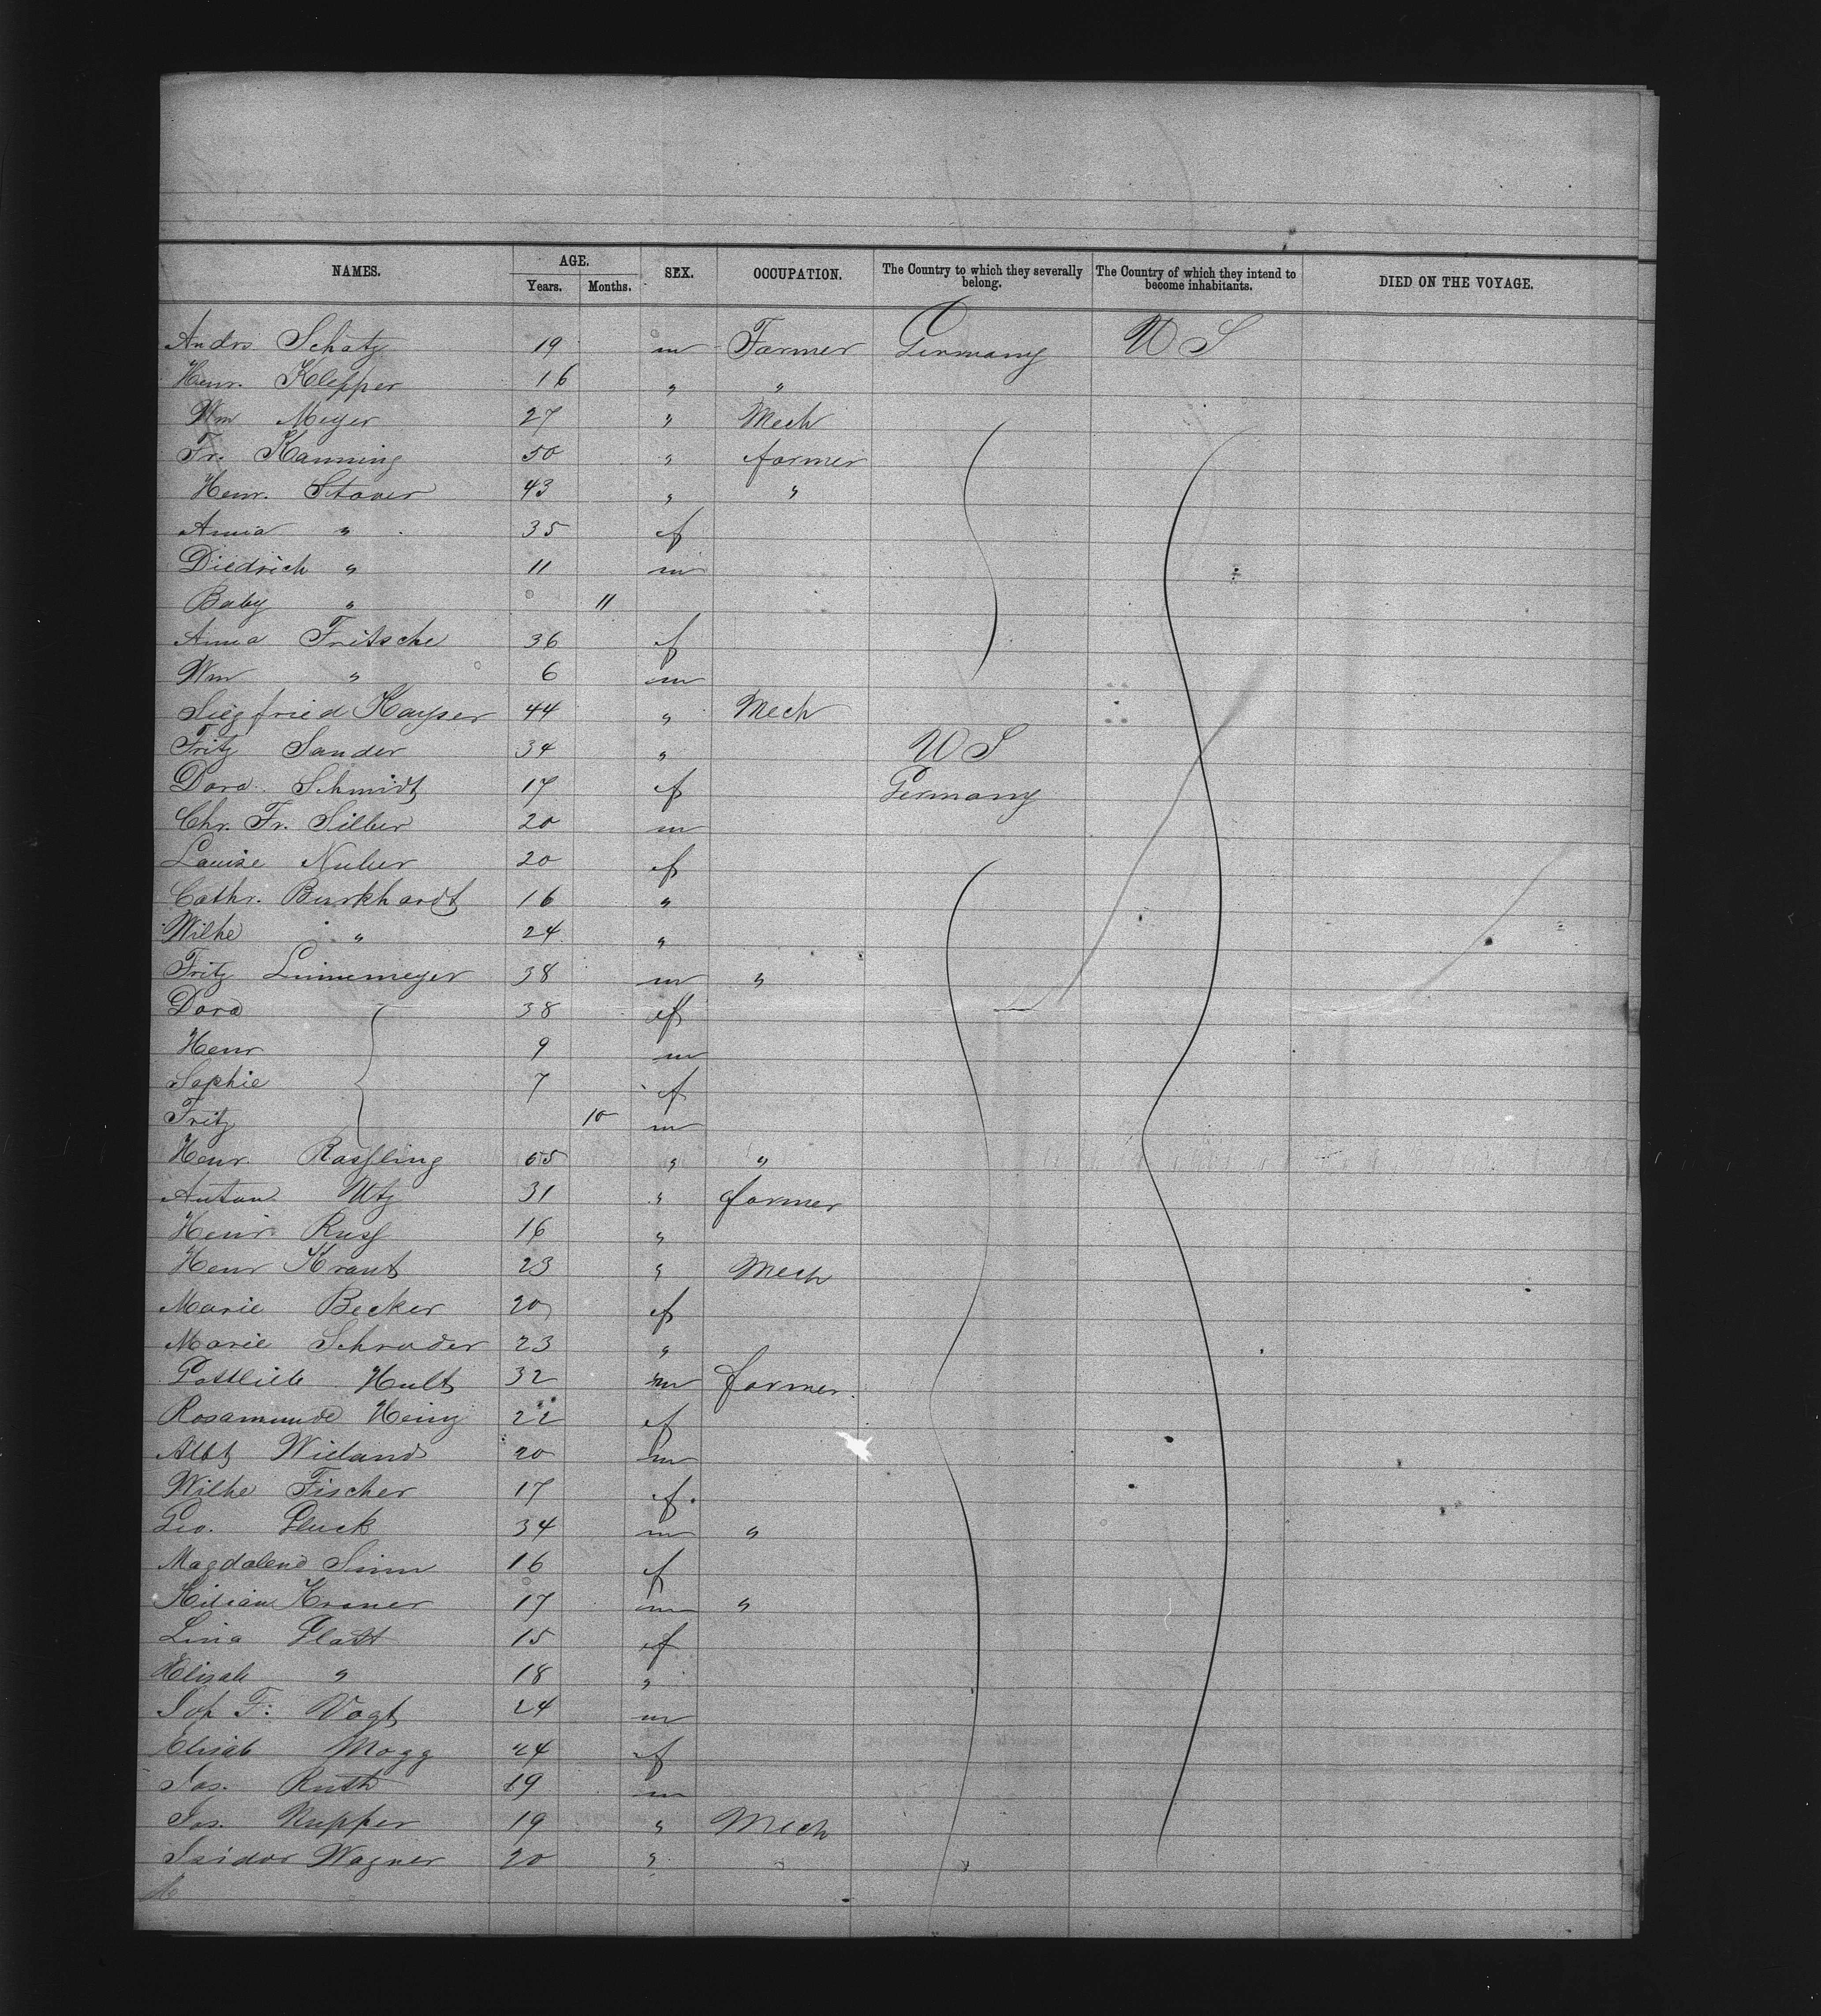 NAMES. AGE. SEX. OCCUPATION. The Country to which they severally belong. The Country of which they intend to become inhabitants. DIED ON THE VOYAGE.
Years. Months.
Andrs Schatz 19 m Farmer Germany U S
Henr. Klepper 16 " "
Wm Meyer 27 " Mech
Fr. Kanning 50 " farmer
Henr. Stover 43 " "
Anna " 35 f
Diedrich " 11 m
Baby " 11
Anna Fritsche 36 f
Wm " 6 m
Siegfried Kayser 44 " Mech
Fritz Sander 34 " U S
Dora Schmidt 17 f Germany
Chr. Fr. Silber 20 m
Louise Nuber 20 f
Cathr. Burkhardt 16 "
Wilhe " 24 "
Fritz Linnemeyer 38 m "
Dora 38 f
Henr 9 m
Sophie 7 f
Fritz 10 m
Henr. Rassling "  "
Anton Utz 31 " farmer
Henr Russ 16 "
Henr Kraut 23 " Mech
Marie Becker 20 f
Marie Schrader 23 "
Gottlieb Hult 32 m farmer
Rosamunde Heinz 22 f
Albt Wieland 20 m
Wilhe Fischer 17 f
Geo. Gluck 34 m "
Magdalena Sinn 16 f
Kilian Kraner 17 m "
Lina Glatt 15 f
Elisab " 18 "
Joh F. Vogt 24 m
Elisab Mogg 24 f
Jos. Ruth 19 m
Jos. Kupfer 19 " Mech
Isidor Wagner 20 "